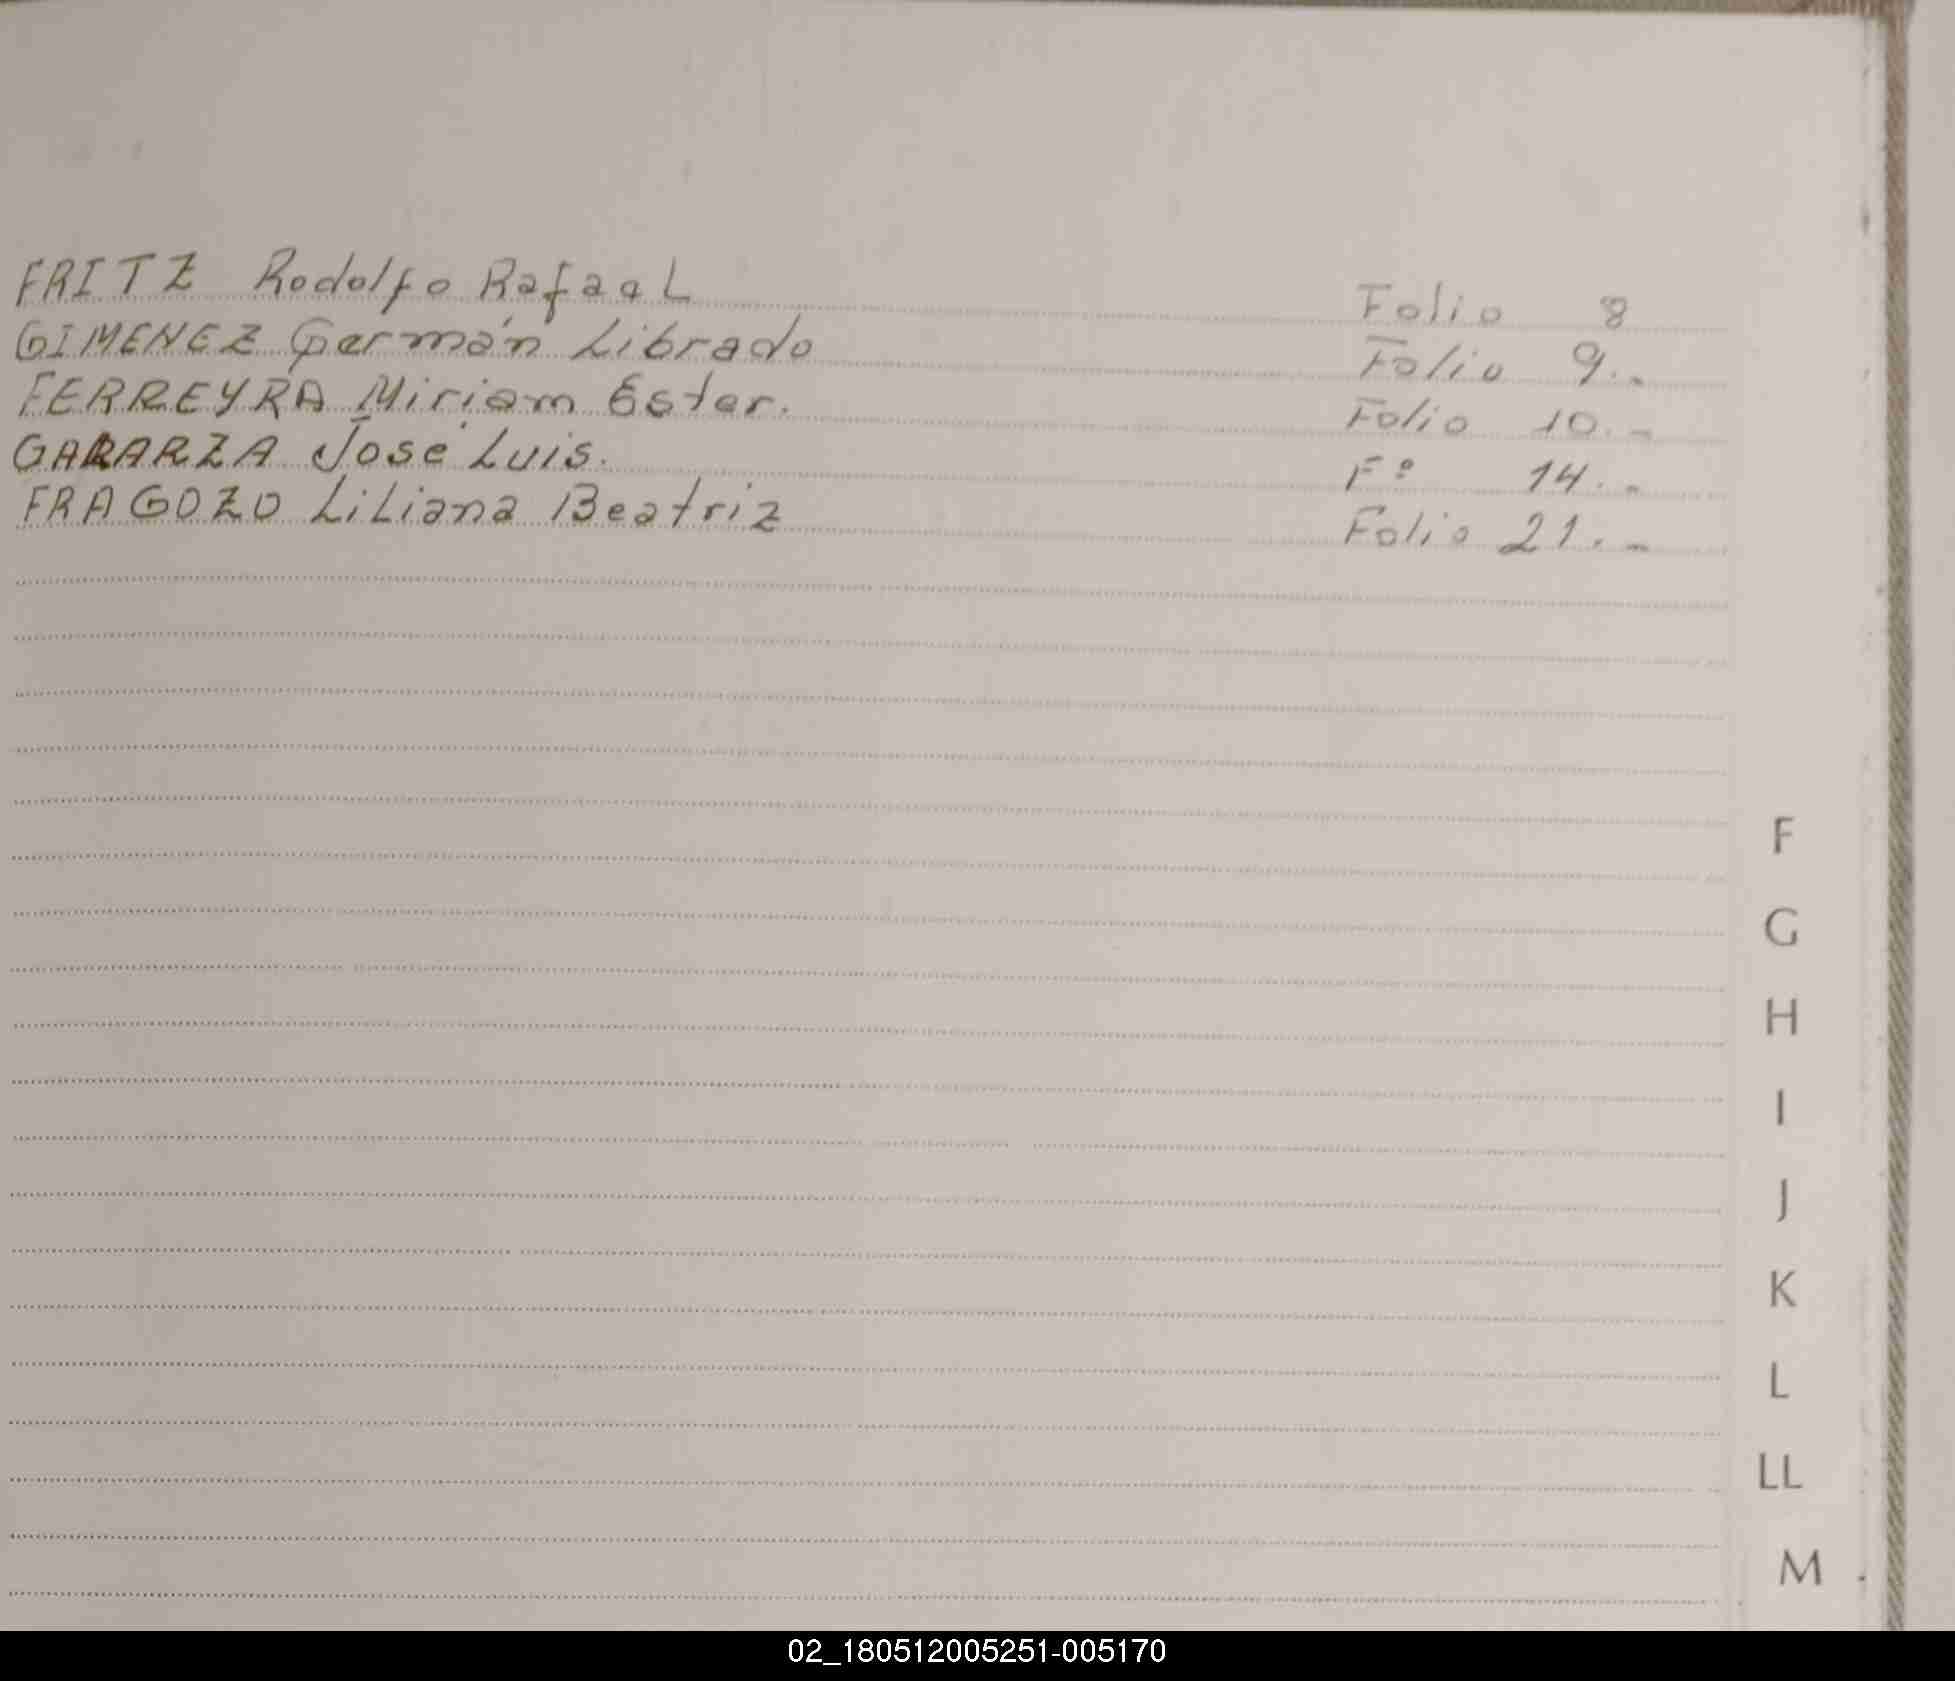 FRITZ Rodolfo Rafael Folio 8
GIMENEZ Germán Librado Folio 9.-
FERREYRA Miriam Ester. Folio 10.-
GALARZA José Luis. Fº 14.-
FRAGOZO Liliana Beatriz Folio 21.-
F
G
H
I
J
K
L
LL
M
02_180512005251-005170